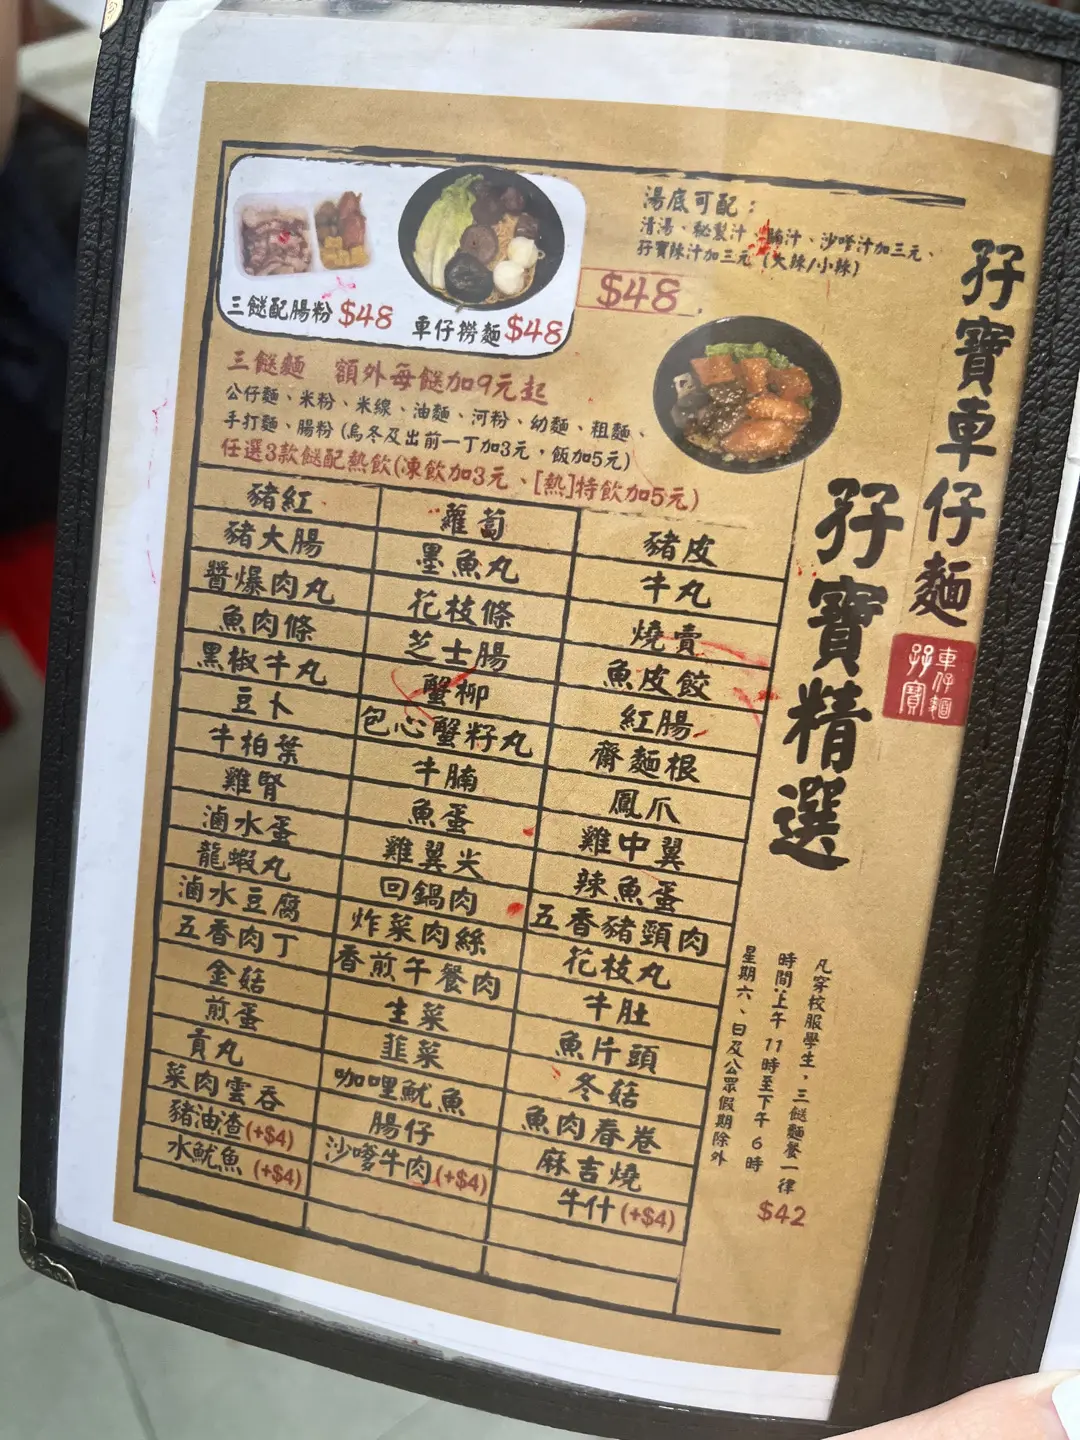 孖寶車仔麵
孖寶
車仔麵
孖寶精選
湯底可配：
清湯、秘製汁、腩汁、沙嗲汁加三元、
孖寶辣汁加三元 (大辣/小辣)
三餸配腸粉 $48
車仔撈麵 $48
$48
三餸麵 額外每餸加9元起
公仔麵、米粉、米線、油麵、河粉、幼麵、粗麵、
手打麵、腸粉 (烏冬及出前一丁加3元，飯加5元)
任選3款餸配熱飲(凍飲加3元、[熱]特飲加5元)
豬紅 蘿蔔 豬皮
豬大腸 墨魚丸 牛丸
醬爆肉丸 花枝條 燒賣
魚肉條 芝士腸 魚皮餃
黑椒牛丸 蟹柳 紅腸
豆卜 包心蟹籽丸 齋麵根
牛柏葉 牛腩 鳳爪
雞腎 魚蛋 雞中翼
滷水蛋 雞翼尖 辣魚蛋
龍蝦丸 回鍋肉 五香豬頸肉
滷水豆腐 炸菜肉絲 花枝丸
五香肉丁 香煎午餐肉 牛肚
金菇 生菜 魚片頭
煎蛋 韮菜 冬菇
貢丸 咖哩魷魚 魚肉春卷
菜肉雲吞 腸仔 麻吉燒
豬油渣(+$4) 沙嗲牛肉(+$4) 牛什(+$4)
水魷魚(+$4)
凡穿校服學生，三餸麵餐一律 $42
時間：上午11時至下午6時
星期六、日及公眾假期除外